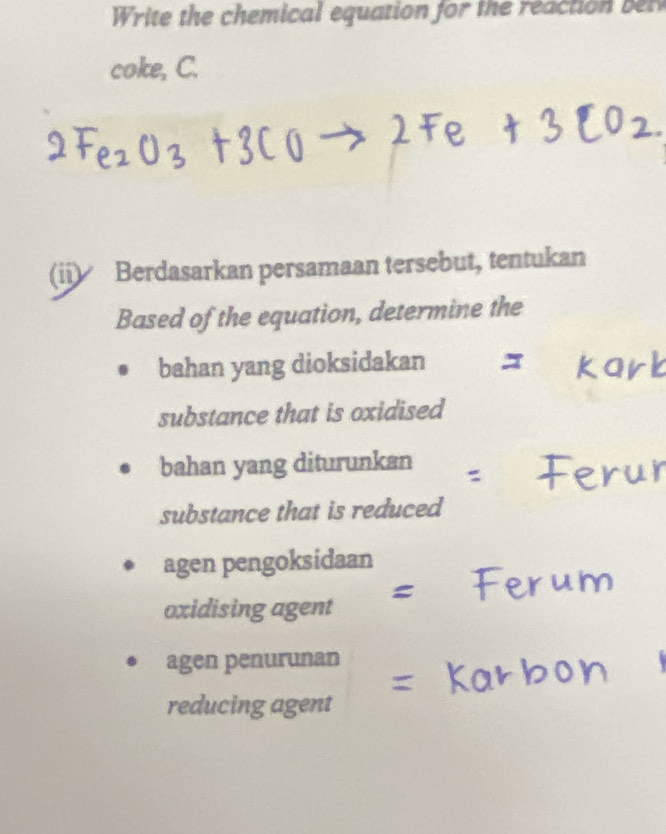 Write the chemical equation for the reaction
coke, C.
2Fe2O3 + 3CO → 2Fe + 3CO2.
(ii) Berdasarkan persamaan tersebut, tentukan
Based of the equation, determine the
• bahan yang dioksidakan =
substance that is oxidised
• bahan yang diturunkan =
substance that is reduced
• agen pengoksidaan = Ferum
oxidising agent
• agen penurunan = Karbon
reducing agent